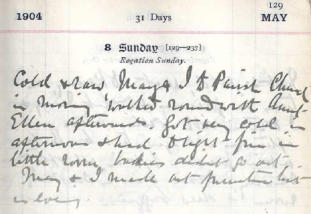 129
1904 31 Days MAY
8 Sunday [129—237]
Rogation Sunday.
Cold & raw May & I to Parish Church
in morning walked round with Aunt
Ellen afterwards. Got very cold in
afternoon & had a light fire in
little room, babies did not go out.
May & I made out
is